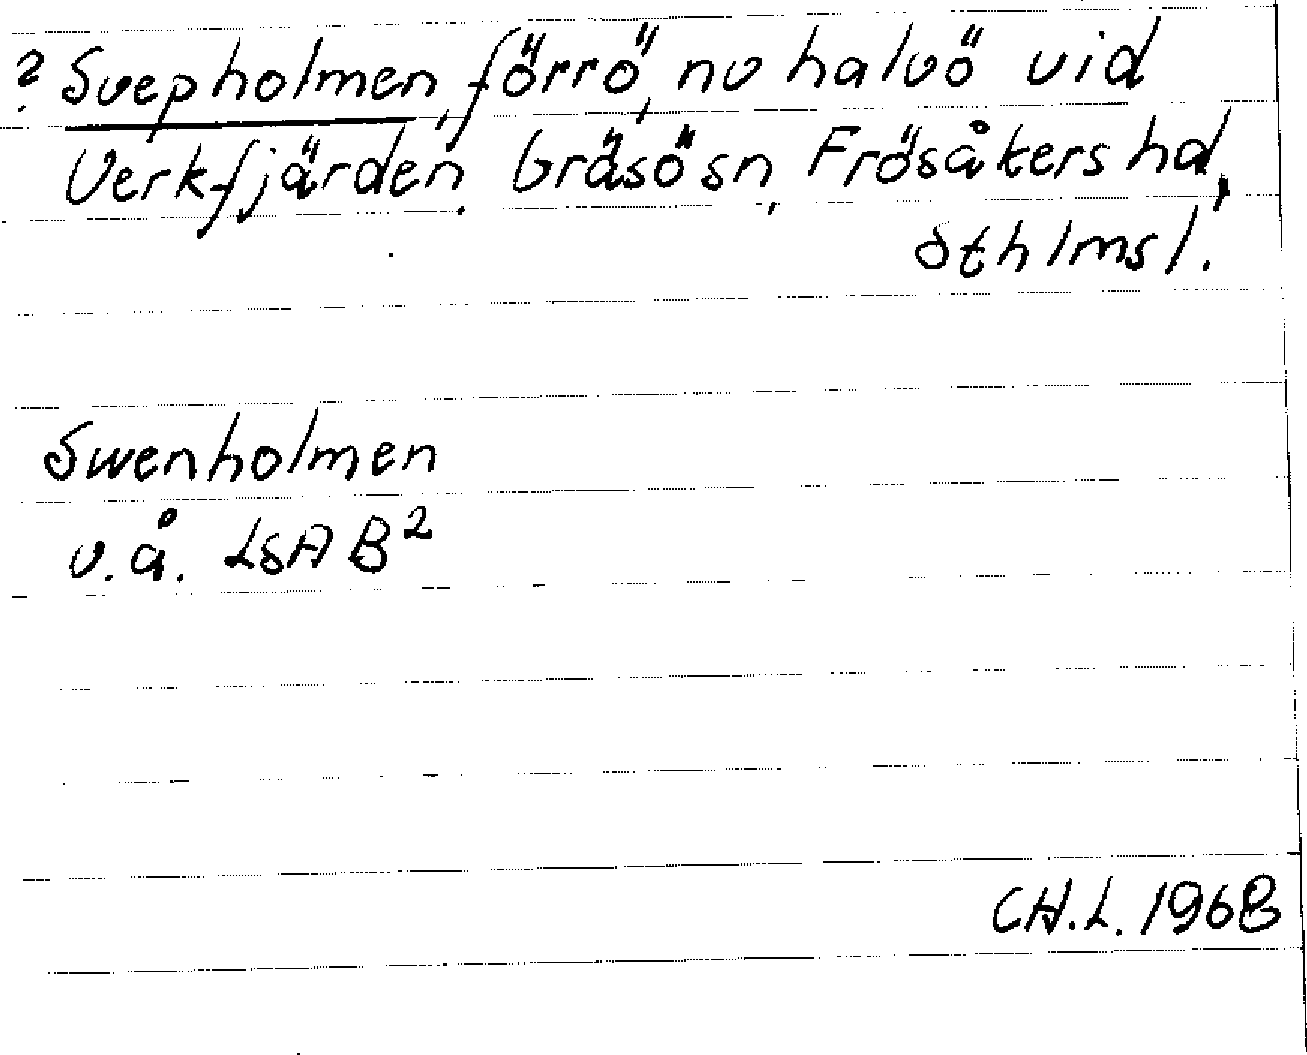 ? Svepholmen, förr ö, nu halvö vid
Verkfjärden. Gräsö sn, Frösåkers hd,
Sthlms l.
Swenholmen
u.å. LSA B²
CH.L. 1968